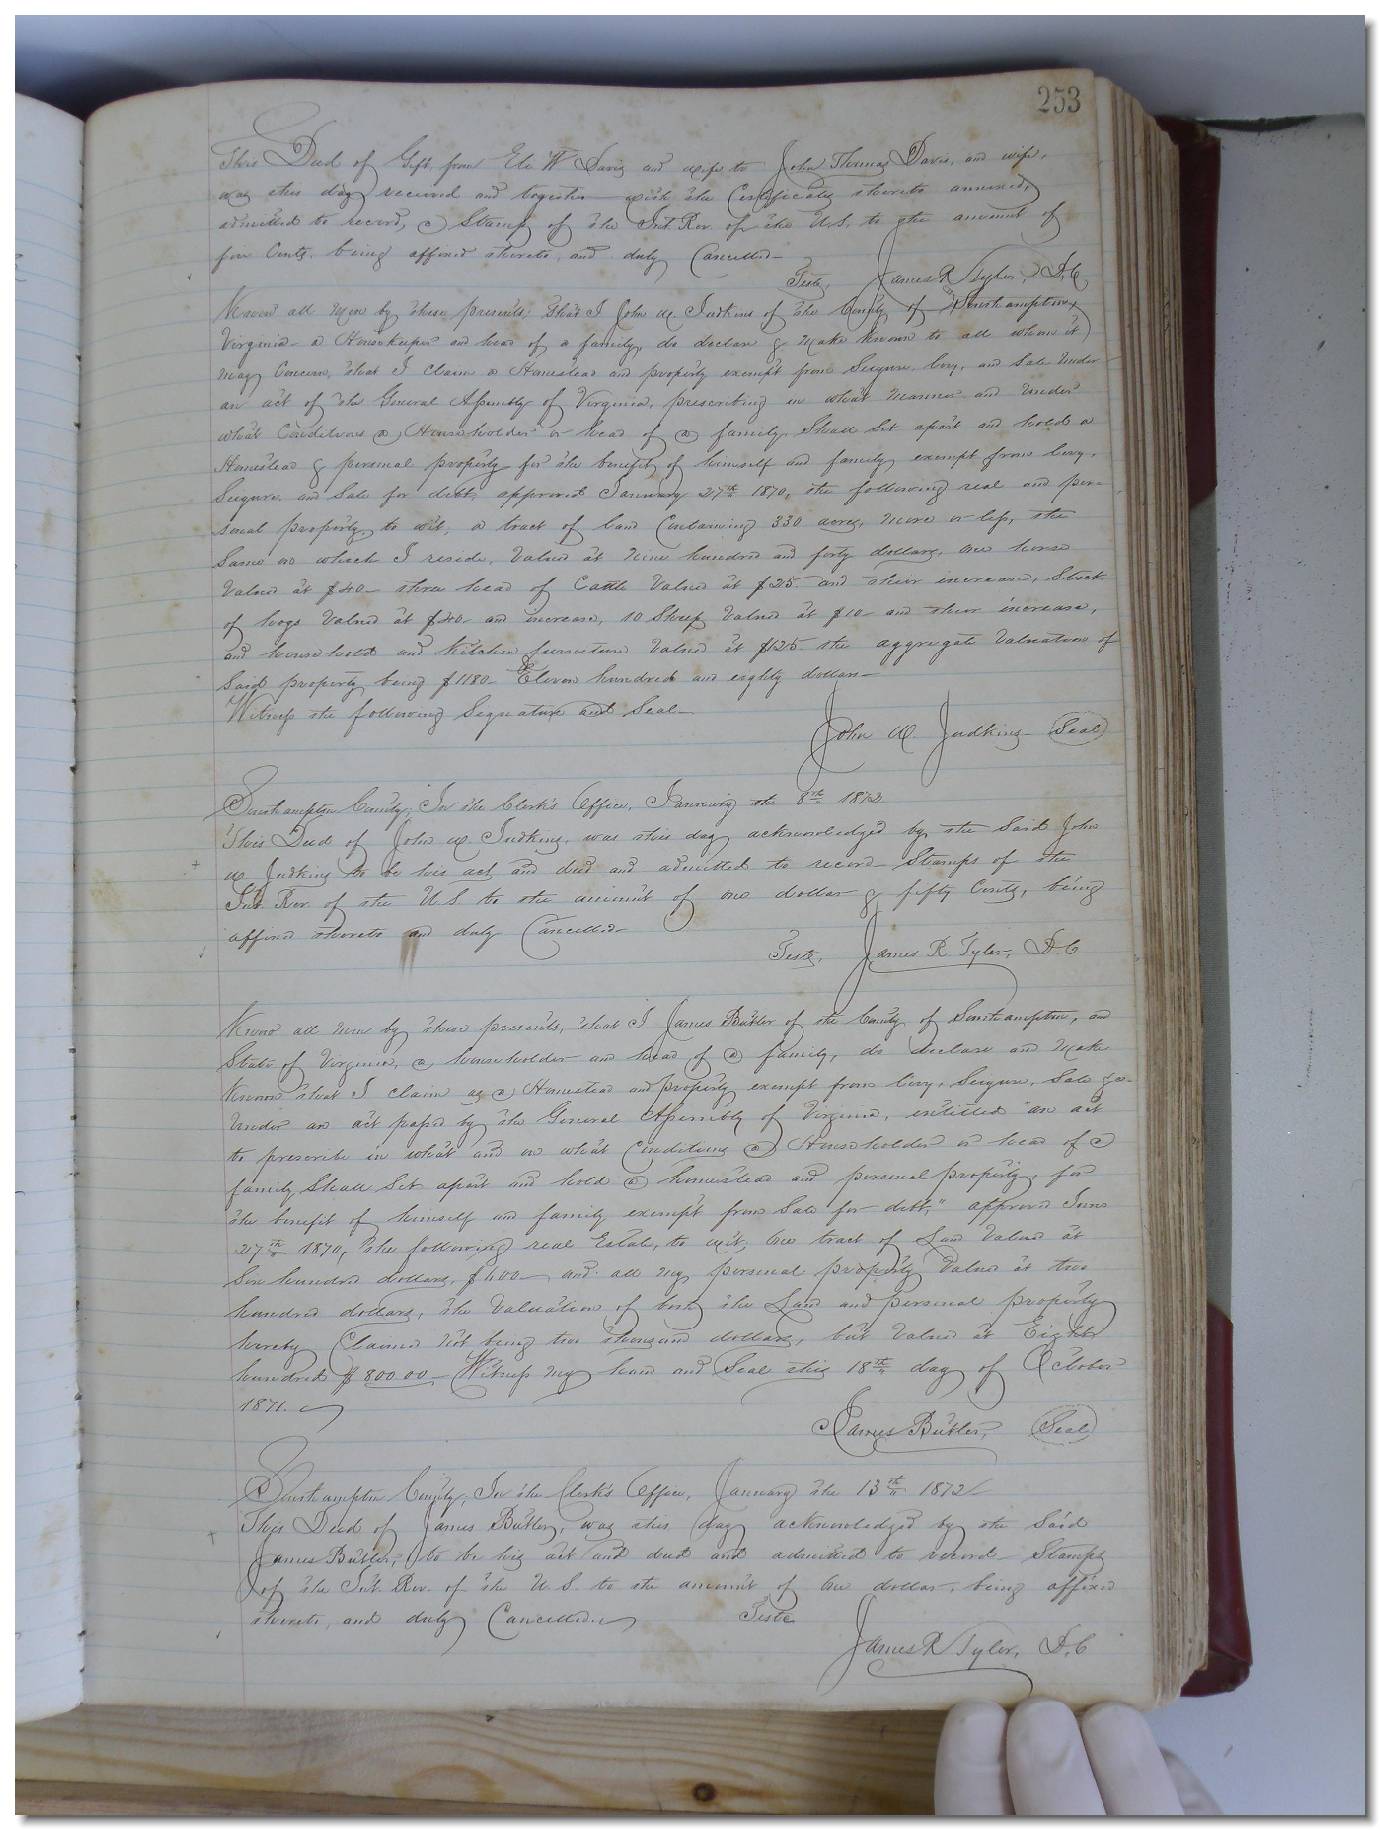 253
This Deed of Gift from Eli W Davis and wife to John Thomas Davis, and wife,
was this day received and together with the Certificate thereto annexed,
admitted to record, a Stamp of the Int. Rev. of the U.S. to the amount of
five Cents. being affixed thereto, and duly Cancelled—
Teste, James R Tyler, D.C
Know all Men by these presents, that I John W. Judkins of the County of Southampton,
Virginia a Housekeeper and head of a family, do declare & Make Known to all whom it
may Concern, that I claim a Homestead and property exempt from Seizure, levy, and Sale Under
an act of the General Assembly of Virginia, prescribing in what Manner and Under
what Conditions a Householder or head of a family Shall Set apart and hold a
Homestead & personal property for the benefit of himself and family exempt from levy,
Seizure, and Sale for debt, approved January 27th 1870, the following real and per-
sonal property, to wit, a tract of land Containing 330 acres, more or less, the
Same on which I reside, Valued at nine hundred and forty dollars, one horse
Valued at $40– three head of Cattle Valued at $25– and their increase, Stock
of hogs Valued at $40– and increase, 10 Sheep Valued at $10– and their increase,
and household and Kitchen furniture Valued at $125– the aggregate Valuation of
Said property being $1180– Eleven hundred and eighty dollars—
Witness the following Signature and Seal—
John W. Judkins Seal
Southampton County; In the Clerk's Office, January the 8th 1872
This Deed of John W Judkins, was this day acknowledged by the Said John
W Judkins to be his act and deed and admitted to record– Stamps of the
Int. Rev. of the U.S to the amount of one dollar & fifty Cents, being
affixed thereto and duly Cancelled—
Teste, James R. Tyler, D.C
Know all men by these presents, that I James Butler of the County of Southampton, and
State of Virginia, a householder and head of a family, do declare and Make
Known that I claim as a Homestead and property exempt from levy, Seizure, Sale &c–
Under an act passed by the General Assembly of Virginia, entitled "an act
to prescribe in what and on what Conditions a Householder or head of a
family Shall Set apart and hold a homestead and personal property, for
the benefit of himself and family exempt from Sale for debt," approved June
27th 1870, the following real Estate, to wit; One tract of Land Valued at
Six hundred dollars, $600— and all my personal property Valued at two
hundred dollars, the Valuation of both the Land and personal property
hereby Claimed not being two thousand dollars, but Valued at Eight
hundred $800.00– Witness my hand and Seal this 18th day of October
1871.
James Butler, Seal
Southampton County; In the Clerk's Office, January the 13th 1872
This Deed of James Butler, was this day acknowledged by the Said
James Butler, to be his act and deed and admitted to record– Stamps
of the Int. Rev. of the U.S. to the amount of One dollar, being affixed
thereto, and duly Cancelled. Teste
James R Tyler, D.C